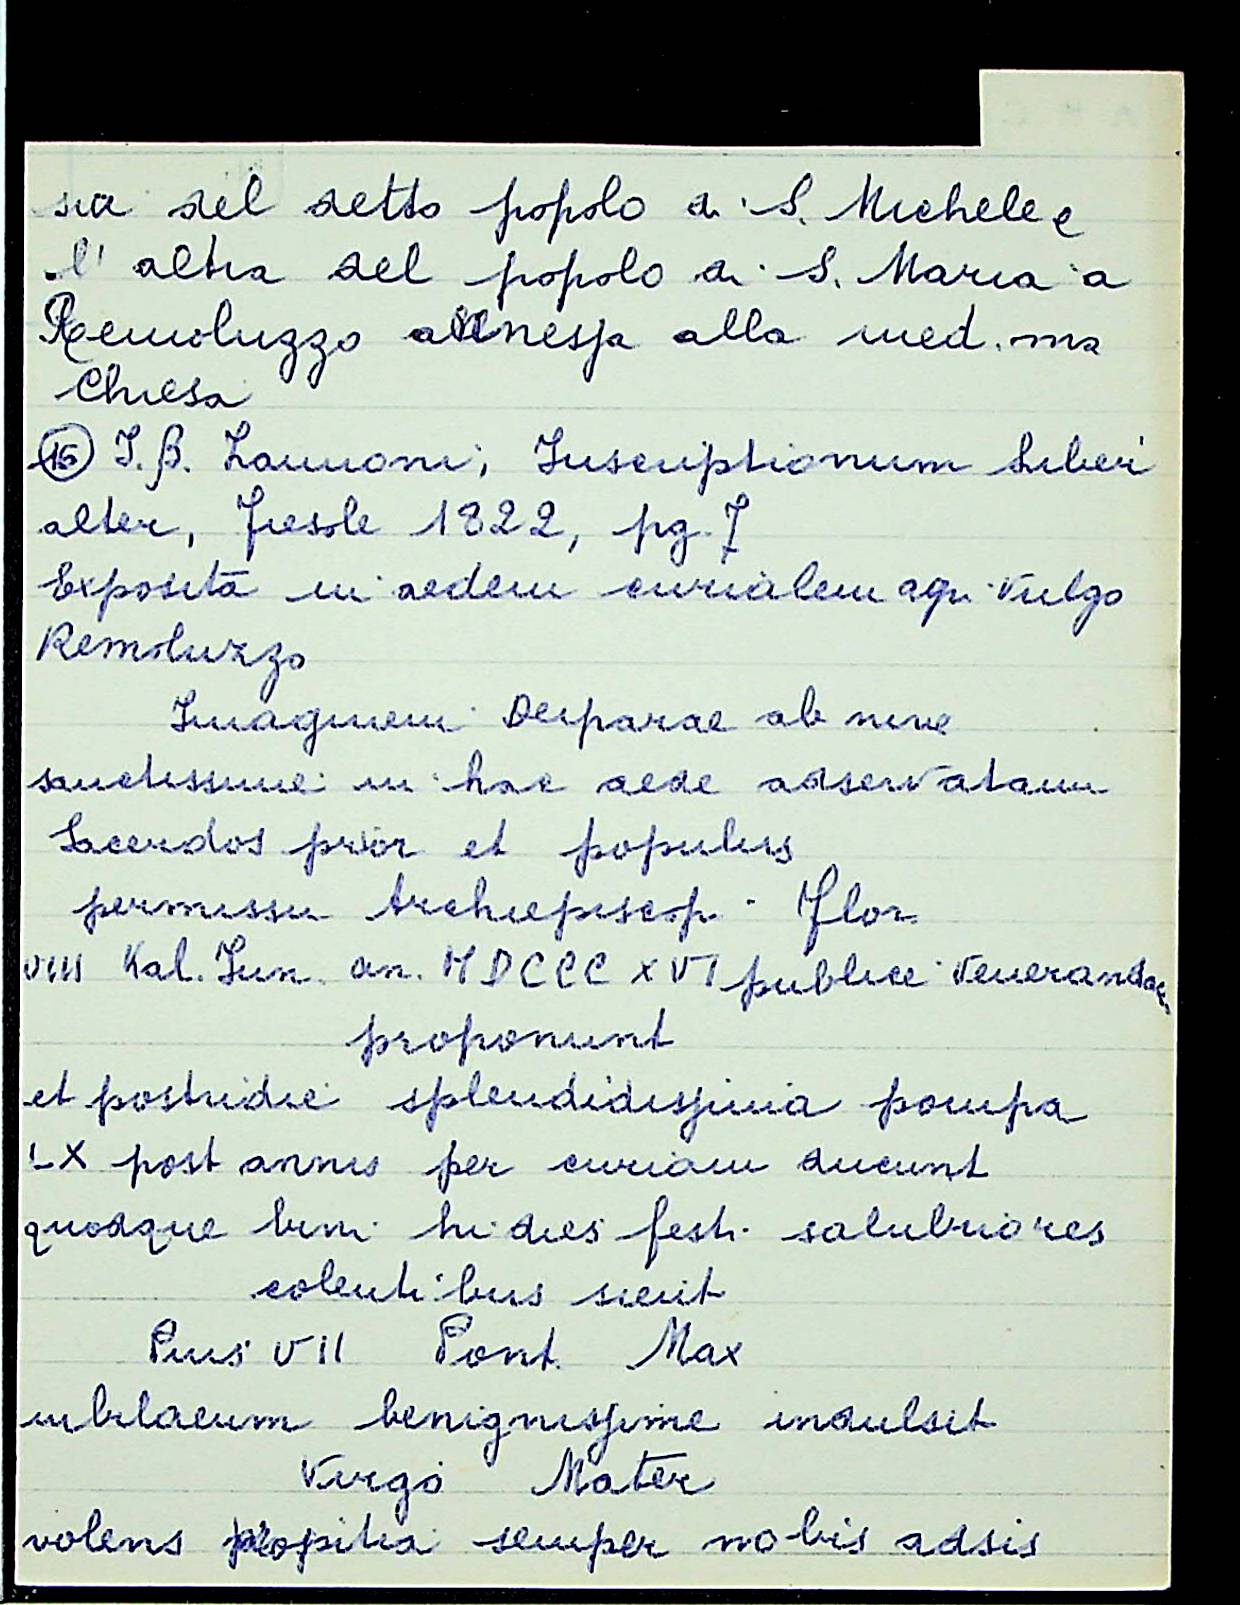 sia del detto popolo di S. Michele e
l'altra del popolo di S. Maria a
Remoluzzo annessa alla med.ma
Chiesa
(15) I. B. Zannoni, Inscriptionum Liber
alter, Fiesole 1822, pg. 7
Exposita in aedem curialem agri vulgo
Remoluzzo
Imaginem Deiparae ab nive
sanctissime in hac aede adservatam
Sacerdos prior et populus
permissu Archiepiscop. Flor.
VIII Kal. Iun. an. MDCCCXVI publice venerandae
proponunt
et postridie splendidissima pompa
LX post annis per curiam ducunt
quodque bini hi dies festi salubriores
colentibus sient
Pius VII Pont. Max
iubilaeum benignissime indulsit
Virgo Mater
volens propitia semper nobis adsis